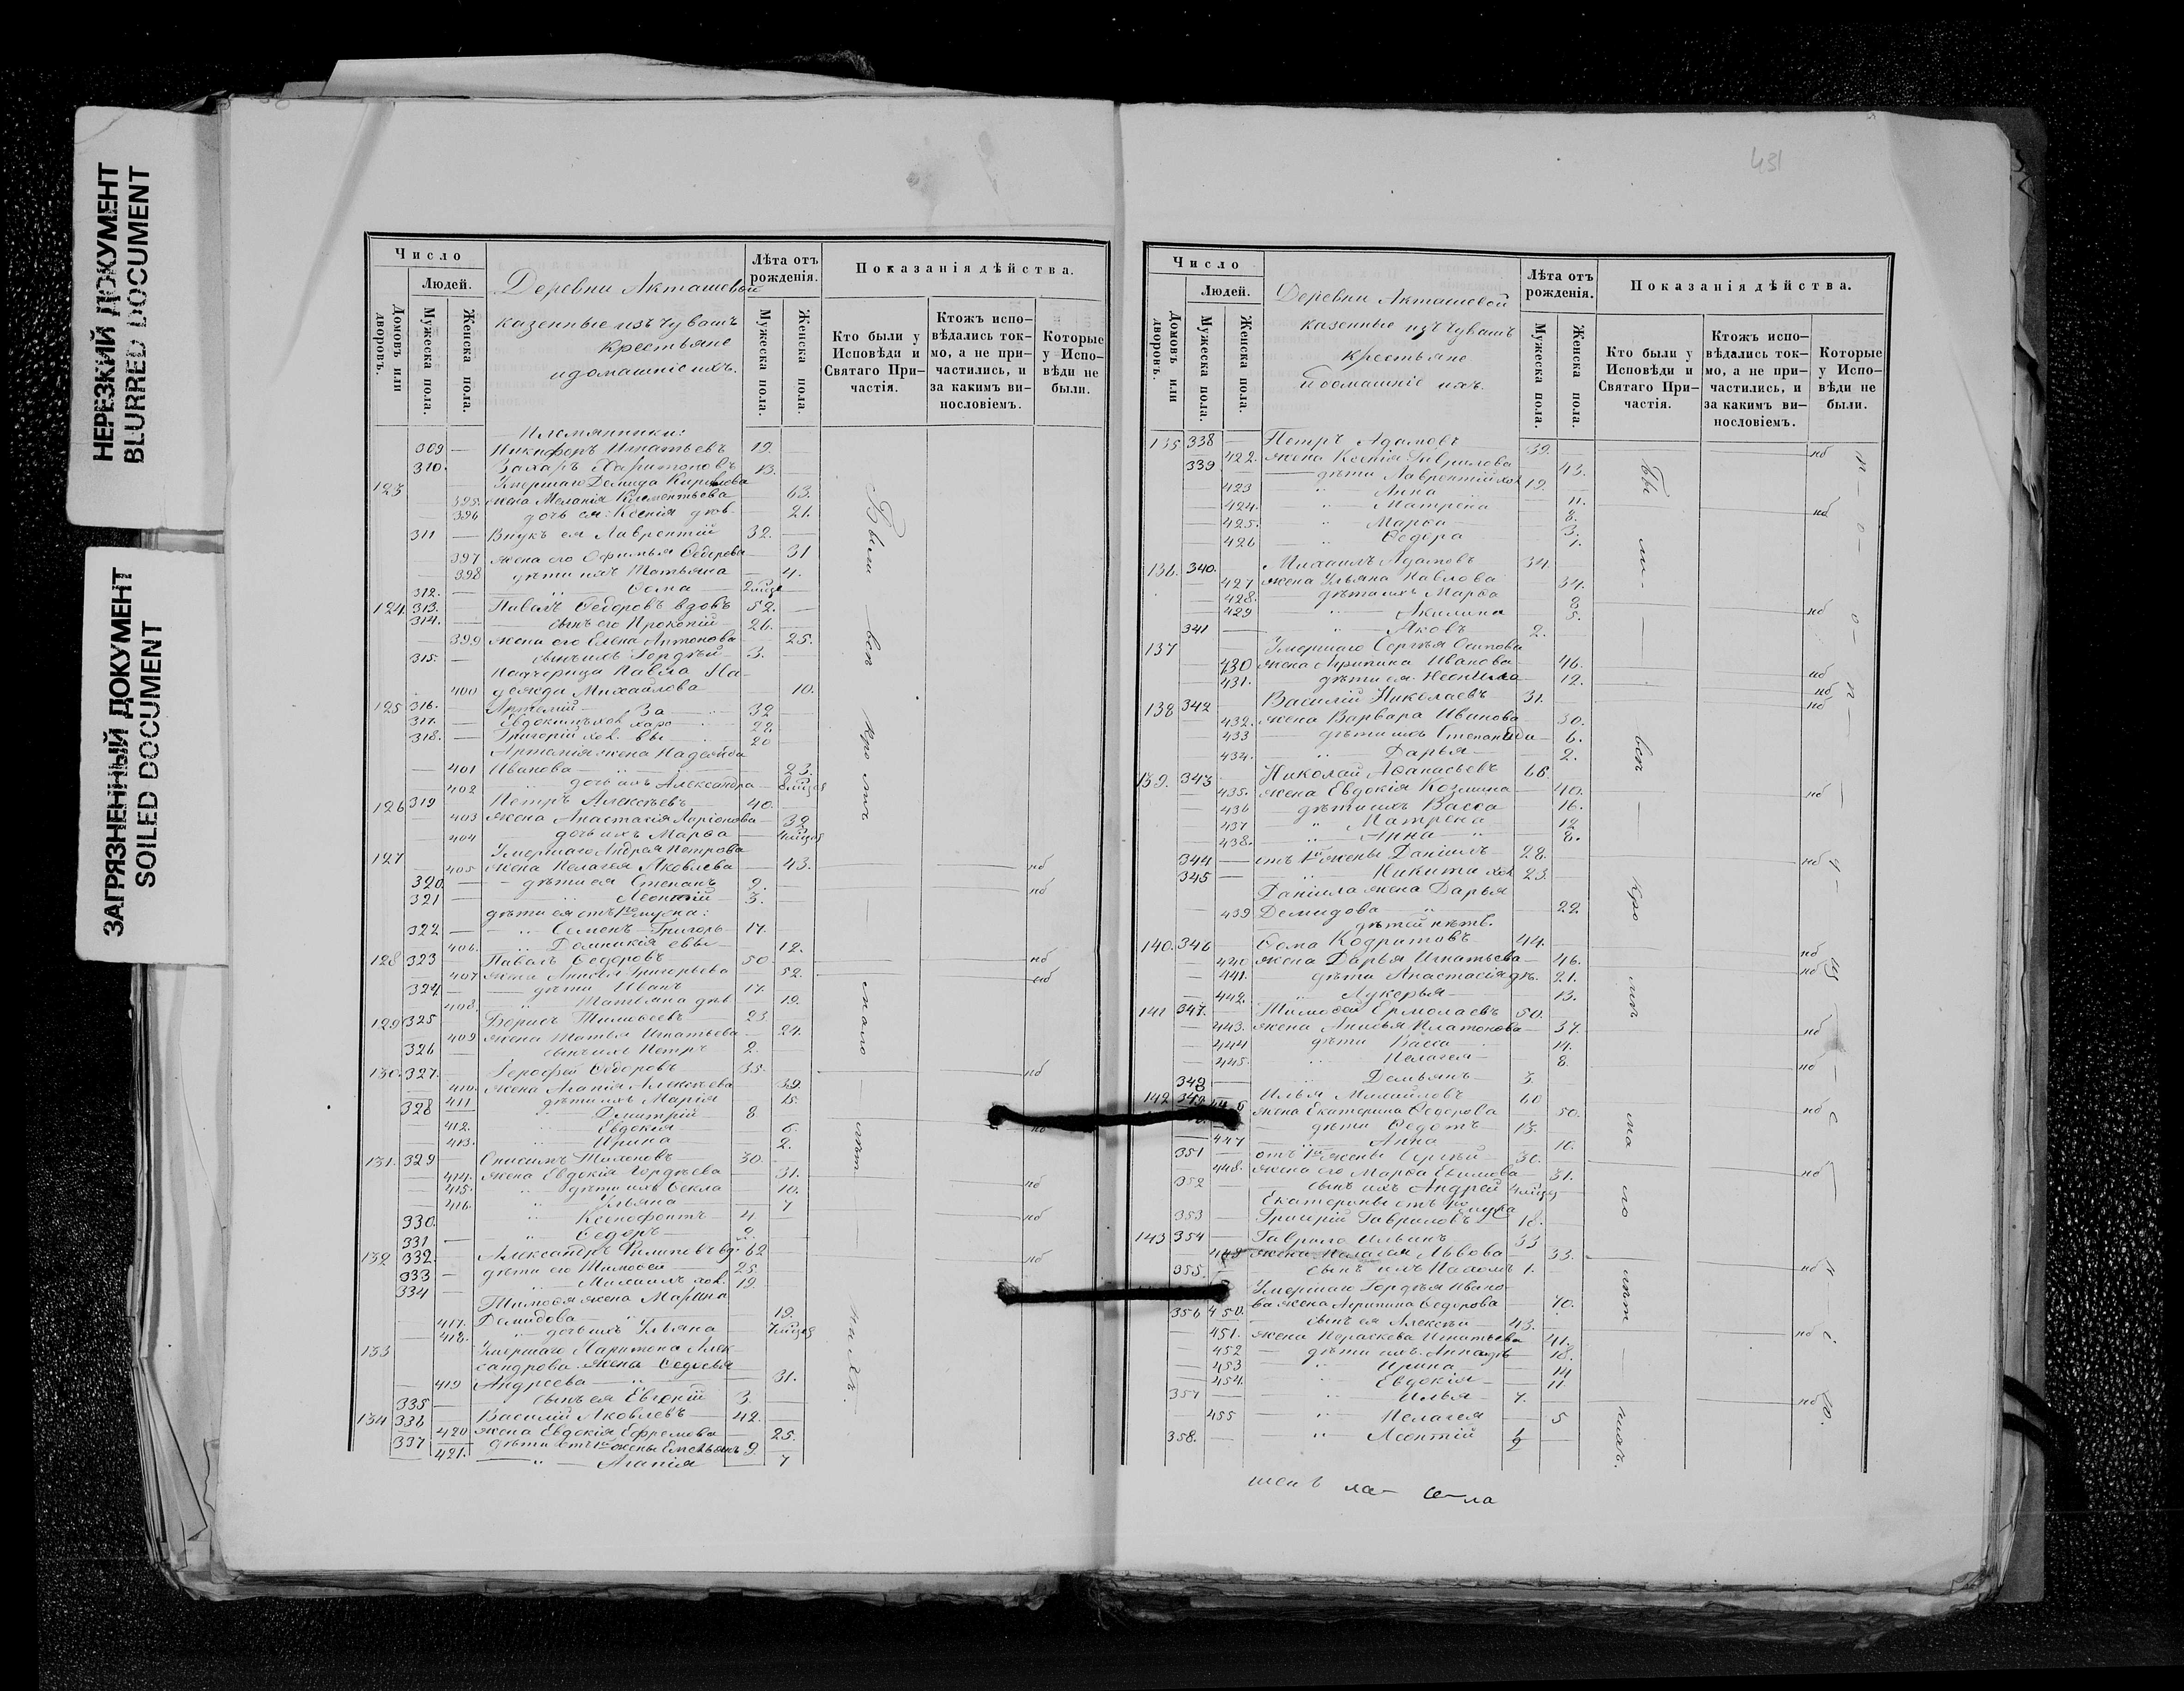 НЕРЕЗКИЙ ДОКУМЕНТ
BLURRED DOCUMENT
ЗАГРЯЗНЕННЫЙ ДОКУМЕНТ
SOILED DOCUMENT
Число
Людей.
Домовъ или дворовъ.
Мужеска пола.
Женска пола.
Деревни Акташевой
казенные изъ чувашъ
крестьяне
и домашніе ихъ.
Лѣта отъ рожденія.
Мужеска пола.
Женска пола.
Показанія дѣйства.
Кто были у Исповѣди и Святаго При-частія.
Ктожъ испо-вѣдались ток-мо, а не при-частились, и за какимъ ви-нословіемъ.
Которые у Испо-вѣди не были.
Племянники:
309 — Никифоръ Игнатьевъ 19.
310. Захаръ Харитоновъ 13.
123 Умершаго Демида Кирилова
395. жена Меланія Климентьева 63.
396 дочь ея Ксенія дѣв. 21.
311 — Внукъ ея Лаврентій 32.
397 жена его Офимья Ѳедорова 31
398 дѣти ихъ Татьяна 4.
312. — " Ѳома 2 мѣсяц
124. 313. — Павелъ Ѳедоровъ вдовъ 52.
314. — сынъ его Прокопій 26.
399 жена его Елена Антонова 25.
315. — сынъ ихъ Гордѣй 3.
Падчерица Павла На-
400 дежда Михайлова 10.
125 316. — Артемій За 32
317. — Евдокимъ хол. харо 22
318. — Григорій хол. вы 20
Артемія жена Надежда
401 Иванова 23.
402 дочь ихъ Александра
126 319 Петръ Алексѣевъ 40.
403 жена Анастасія Ларіонова 32
404 дочь ихъ Марѳа
127 Умершаго Андрея Петрова
405 жена Пелагея Яковлева 43. нб
320. — дѣти ея Степанъ 9. нб
321 — " Леонтій 3.
дѣти ея отъ 1го мужа:
322 — " Семенъ Григорь- 17.
406. " Домникія евы 12.
128 323 — Павелъ Ѳедоровъ 50 нб
407 жена Анисья Григорьева 52. нб
324 — дѣти Иванъ 17.
408. " Татьяна дѣв 19.
129 325 — Борисъ Тимоѳеевъ 23
409 жена Татьяна Игнатьева 24.
326 — сынъ ихъ Петръ 2.
130. 327. — Ѳедоровъ 35. нб
410. жена Агапія Алексѣева 39.
411 дѣти ихъ Марія 15.
328 " Дмитрій 8
412. " Евдокія 6. нб
413. " Ирина 2.
131. 329 — Онисимъ Тихоновъ 30.
414. жена Евдокія Гордѣева 31.
415. " дѣти ихъ Ѳекла 10. нб
416. " Ульяна 7
330. " Ксенофонтъ 4 нб
331 — " Ѳедоръ 2.
132 332. — Александръ Филиповъ вд. 62
333 — дѣти его Тимоѳей 25. нб
334 — " Михаилъ хол. 19.
Тимоѳея жена Марина
417. Демидова 19.
418. " дочь ихъ Ульяна 7 мѣсяц
133 Умершаго Харитона Алек-
сандрова жена Ѳедосья
419 Андреева 31.
335 — сынъ ея Евгеній 3.
134 336 Василій Яковлевъ 42.
420 жена Евдокія Ефремова 25.
337 дѣти отъ 1й жены Емельянъ 9
421. " Агапія 7
Были всѣ кромѣ мало лѣт нихъ.
431
Число
Людей.
Домовъ или дворовъ.
Мужеска пола.
Женска пола.
Деревни Акташевой
казенные изъ чувашъ
крестьяне
и домашніе ихъ.
Лѣта отъ рожденія.
Мужеска пола.
Женска пола.
Показанія дѣйства.
Кто были у Исповѣди и Святаго При-частія.
Ктожъ испо-вѣдались ток-мо, а не при-частились, и за какимъ ви-нословіемъ.
Которые у Испо-вѣди не были.
135 338 — Петръ Адамовъ 39. нб
422. жена Ксенія Гаврилова 43.
339 дѣти Лаврентій хол 19.
423 " Анна 11.
424. " Матрена 8. нб
425. " Марѳа 3.
426 " Ѳедора 1.
136. 340. Михаилъ Адамовъ 34.
427 жена Ульяна Павлова 34.
428. дѣти ихъ Марѳа 8
429 " Акилина 5. нб
341 " Яковъ 2.
137 Умершаго Сергѣя Осипова
430 жена Агрипина Иванова 46. нб
431. дѣти ея Неонила 12. нб
138 342 Василій Николаевъ 31. нб
432. жена Варвара Иванова 30.
433 дѣти ихъ Степанида 6.
434. " Дарья 2.
139. 343 — Николай Аѳанасьевъ 66.
435. жена Евдокія Козмина 40. нб
436 дѣти ихъ Васса 16.
437 " Матрена 12
438. " Анна 8.
344 — отъ 1й жены Даніилъ 28. нб
345 — " Никита хол 23.
Даніила жена Дарья
439 Демидова 22
дѣтей нѣтъ.
140. 346 Ѳома Кодратовъ 44. нб
440 жена Дарья Игнатьева 46. нб
441. дѣти Анастасія дѣв. 21.
442. " Лукерья 13.
141 347. — Тимоѳей Ермолаевъ 50.
443. жена Анисья Платонова 37. нб
444 дѣти Васса 14.
445. " Пелагея 8. нб
348 " Демьянъ 3.
142 349 Илья Михайловъ 60
446 жена Екатерина Ѳедорова 50. нб
дѣти Ѳедотъ 13.
447 " Анна 10.
351 — отъ 1й жены Сергѣй 30.
448. жена его Марѳа Ефимова 31. нб
352 — сынъ ихъ Андрей 4 мѣсяц
Екатерины отъ 1го мужа
353 Григорій Гавриловъ 18.
143 354 — Гаврило Ильинъ 33
449 жена Пелагея Львова 33.
355. — сынъ ихъ Пахомъ 1. нб
Умершаго Гордѣя Ивано-
450. ва жена Агрипина Ѳедорова 70.
356 сынъ ея Алексѣй 43.
451. жена Параскева Игнатьева 41. нб
452 дѣти ихъ Анна дѣв 18.
453 " Ирина 14
454. " Евдокія 11
357 — " Илья 7. нб
455 " Пелагея 5
358. — " Леонтій 1/2
Бы ли всѣ кро мѣ ма ло лѣт нихъ.